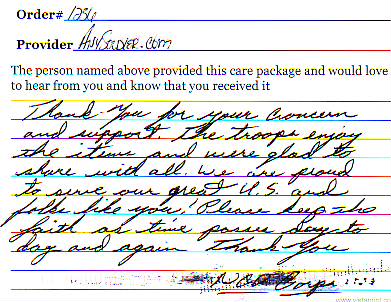 Order# 1256
Provider AnySoldier.com
The person named above provided this care package and would love
to hear from you and know that you received it
Thank you for your concern
and support. The troops enjoy
the items and were glad to
share with all. We are proud
to serve our great U.S. and
folks like you! Please keep the
faith as time passes day to
day and again Thank You
Corps